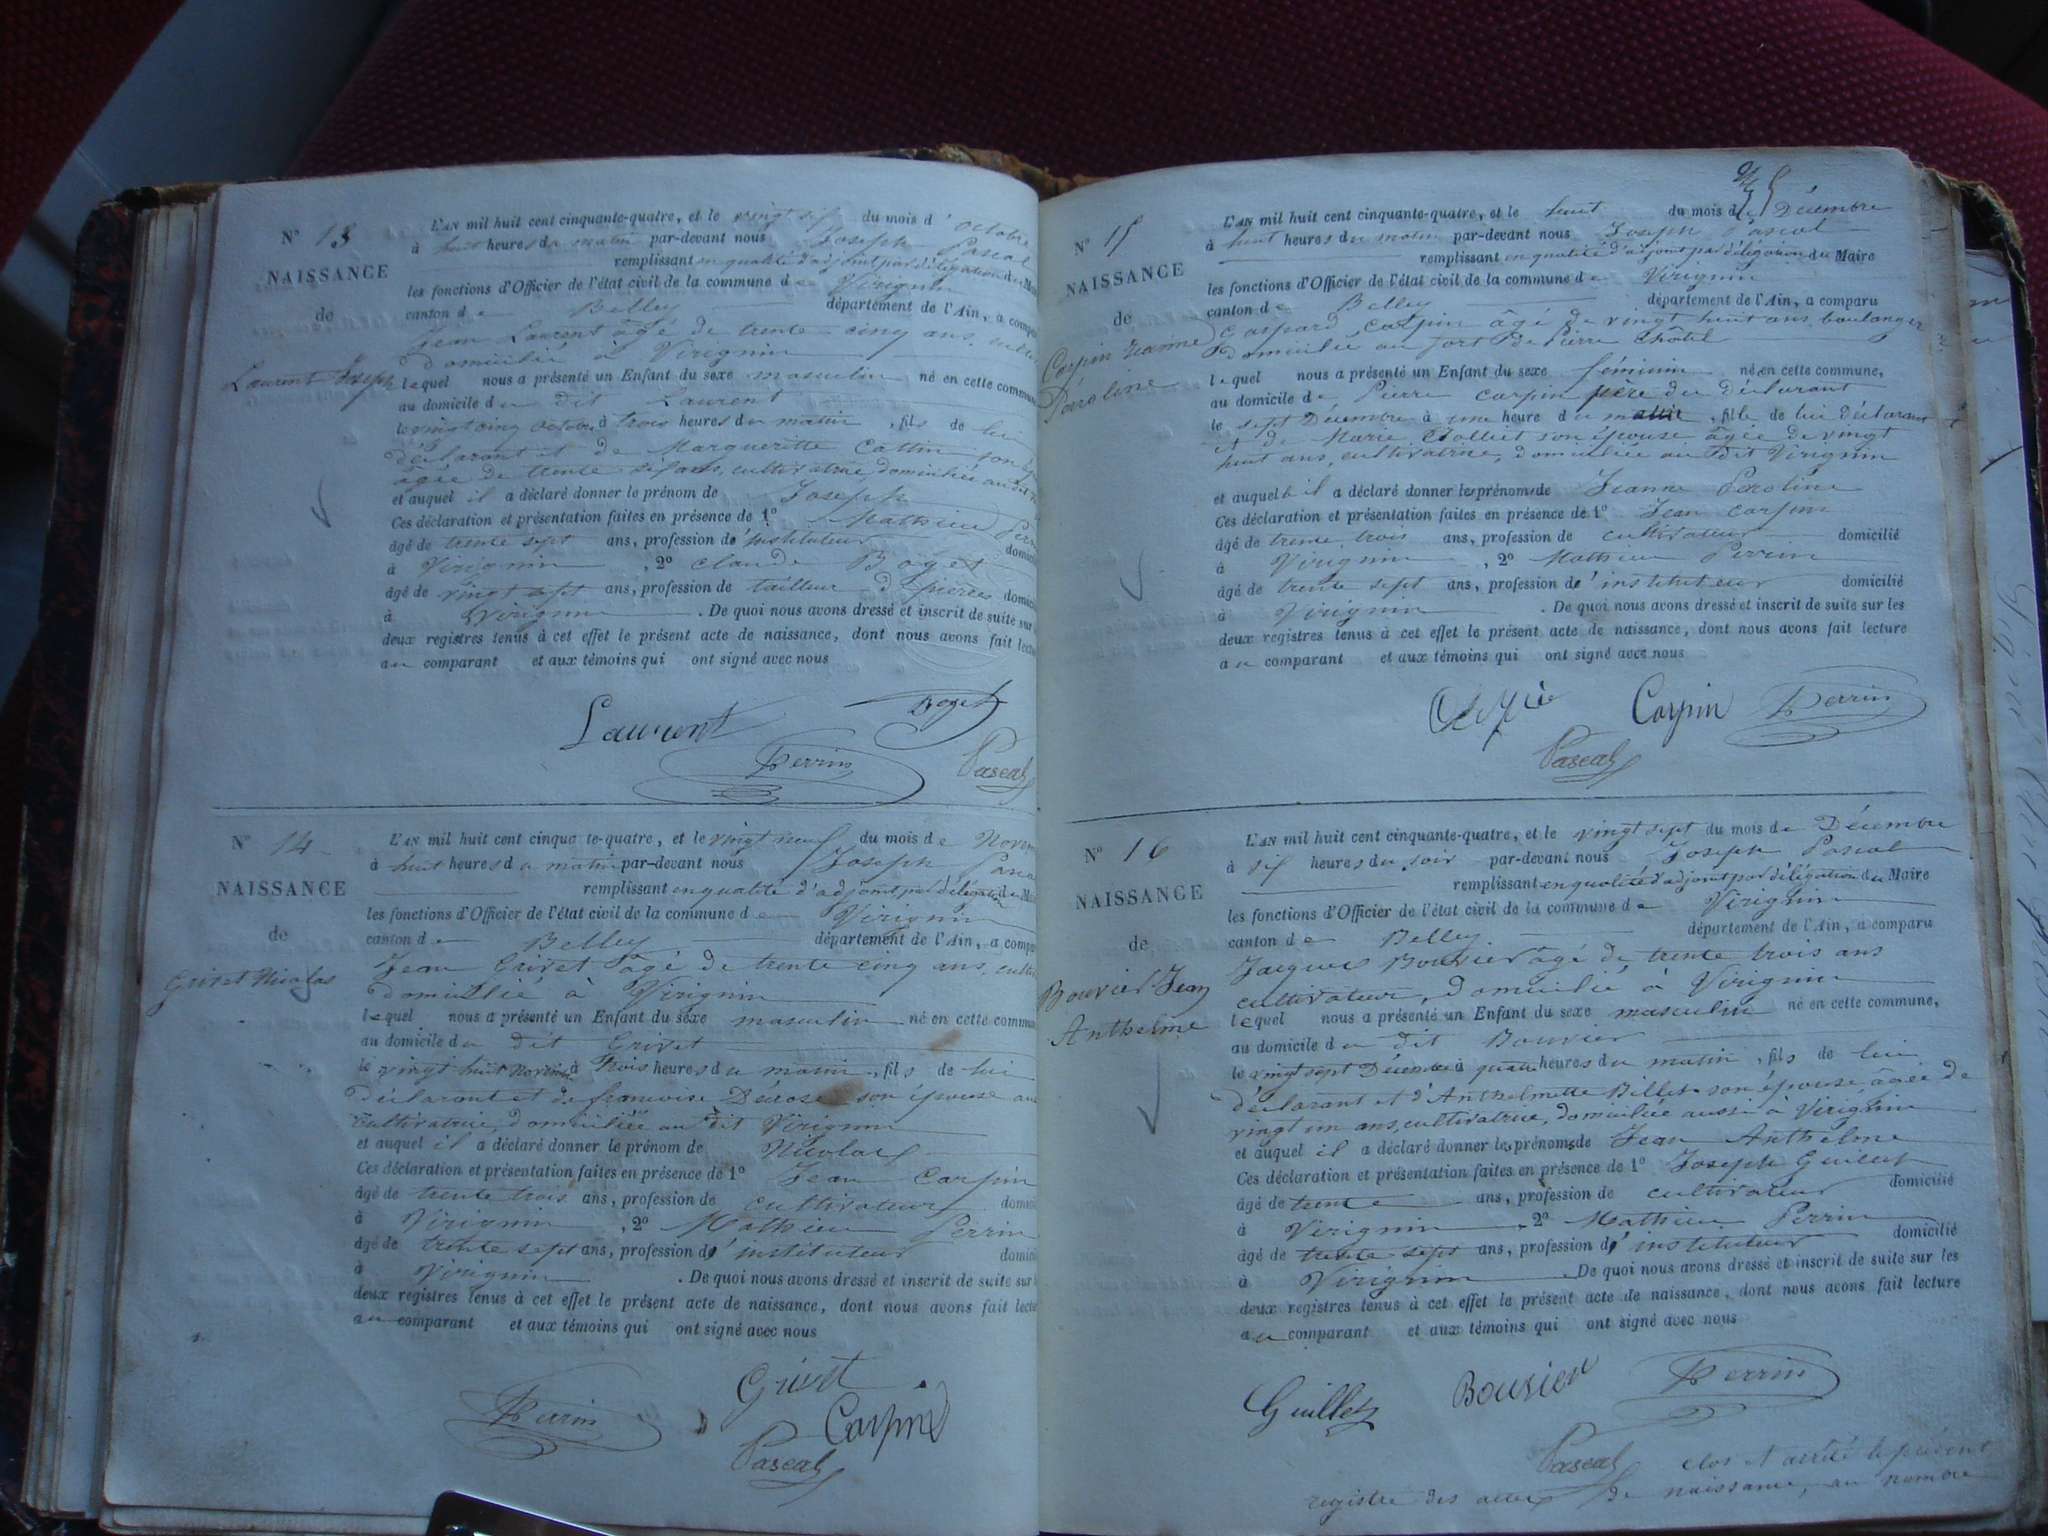 N° 13
NAISSANCE
de
Laurent Joseph
L'AN mil huit cent cinquante-quatre, et le vingt six du mois d'octobre
à huit heures du matin par-devant nous Joseph Pascal
remplissant en qualité d'adjoint par délégation du Maire
les fonctions d'Officier de l'état civil de la commune de Virignin
canton de Belley département de l'Ain, a comparu
Jean Laurent âgé de trente cinq ans,
domicilié à Virignin
lequel nous a présenté un Enfant du sexe masculin né en cette commune
au domicile du dit Laurent
le vingt cinq octobre à trois heures du matin, fils de lui
déclarant et de Margueritte Cattin son
âgée de trente six ans, cultivatrice, domiciliée au dit
et auquel il a déclaré donner le prénom de Joseph
Ces déclaration et présentation faites en présence de 1° Mathieu Perrin
âgé de trente sept ans, profession d'instituteur
à Virignin, 2° Claude Boget
âgé de vingt sept ans, profession de tailleur d pierres
à Virignin. De quoi nous avons dressé et inscrit de suite sur
deux registres tenus à cet effet le présent acte de naissance, dont nous avons fait lecture
au comparant et aux témoins qui ont signé avec nous
Laurent Boget
Perrin Pascal
N° 14
NAISSANCE
de
Grivet Nicolas
L'AN mil huit cent cinquante-quatre, et le vingt neuf du mois de Novem
à huit heures du matin par-devant nous Joseph Pascal
remplissant en qualité d'adjoint par délégation du Maire
les fonctions d'Officier de l'état civil de la commune de Virignin
canton de Belley département de l'Ain, a comparu
Jean Grivet âgé de trente cinq ans, cultiv
domicilié à Virignin
lequel nous a présenté un Enfant du sexe masculin né en cette commun
au domicile du dit Grivet
le vingt huit Novembre à trois heures du matin, fils de lui
déclarant et de françoise son épouse
cultivatrice, domiciliée au dit Virignin
et auquel il a déclaré donner le prénom de Nicolas
Ces déclaration et présentation faites en présence de 1° Jean Carpin
âgé de trente trois ans, profession de cultivateur
à Virignin, 2° Mathieu Perrin
âgé de trente sept ans, profession d'instituteur
à Virignin. De quoi nous avons dressé et inscrit de suite sur
deux registres tenus à cet effet le présent acte de naissance, dont nous avons fait lectu
au comparant et aux témoins qui ont signé avec nous
Grivet
Perrin Carpin
Pascal
N° 15
NAISSANCE
de
Carpin Jeanne
Péroline
L'AN mil huit cent cinquante-quatre, et le huit du mois de Décembre
à huit heures du matin par-devant nous Joseph Pascal
remplissant en qualité d'adjoint par délégation du Maire
les fonctions d'Officier de l'état civil de la commune de Virignin
canton de Belley département de l'Ain, a comparu
Gaspard Carpin âgé de vingt huit ans boulanger
domicilié au fort de Pierre Châtel
lequel nous a présenté un Enfant du sexe féminin né en cette commune,
au domicile de Pierre Carpin père du déclarant
le sept Décembre à une heure du matin, fille de lui déclarant
et de Marie son épouse âgée de vingt
huit ans, cultivatrice, domiciliée au dit Virignin
et auquel il a déclaré donner les prénoms de Jeanne Péroline
Ces déclaration et présentation faites en présence de 1° Jean Carpin
âgé de trente trois ans, profession de cultivateur domicilié
à Virignin, 2° Mathieu Perrin
âgé de trente sept ans, profession d'instituteur domicilié
à Virignin. De quoi nous avons dressé et inscrit de suite sur les
deux registres tenus à cet effet le présent acte de naissance, dont nous avons fait lecture
au comparant et aux témoins qui ont signé avec nous
Carpin Perrin
Pascal
N° 16
NAISSANCE
de
Bouvier Jean
Anthelme
L'AN mil huit cent cinquante-quatre, et le vingt sept du mois de Décembre
à six heures du soir par-devant nous Joseph Pascal
remplissant en qualité d'adjoint par délégation du Maire
les fonctions d'Officier de l'état civil de la commune de Virignin
canton de Belley département de l'Ain, a comparu
Jacques Bouvier âgé de trente trois ans
cultivateur, domicilié à Virignin
lequel nous a présenté un Enfant du sexe masculin né en cette commune,
au domicile du dit Bouvier
le vingt sept Décembre à quatre heures du matin, fils de lui
déclarant et d'Anthelmette Billet son épouse âgée de
vingt un ans, cultivatrice, domiciliée aussi à Virignin
et auquel il a déclaré donner les prénoms de Jean Anthelme
Ces déclaration et présentation faites en présence de 1° Joseph Guillet
âgé de trente ans, profession de cultivateur domicilié
à Virignin 2° Mathieu Perrin
âgé de trente sept ans, profession d'instituteur domicilié
à Virignin. De quoi nous avons dressé et inscrit de suite sur les
deux registres tenus à cet effet le présent acte de naissance, dont nous avons fait lecture
au comparant et aux témoins qui ont signé avec nous
Guillet Bouvier Perrin
Pascal clos et arrêté le présent
registre des actes de naissance, au nombre